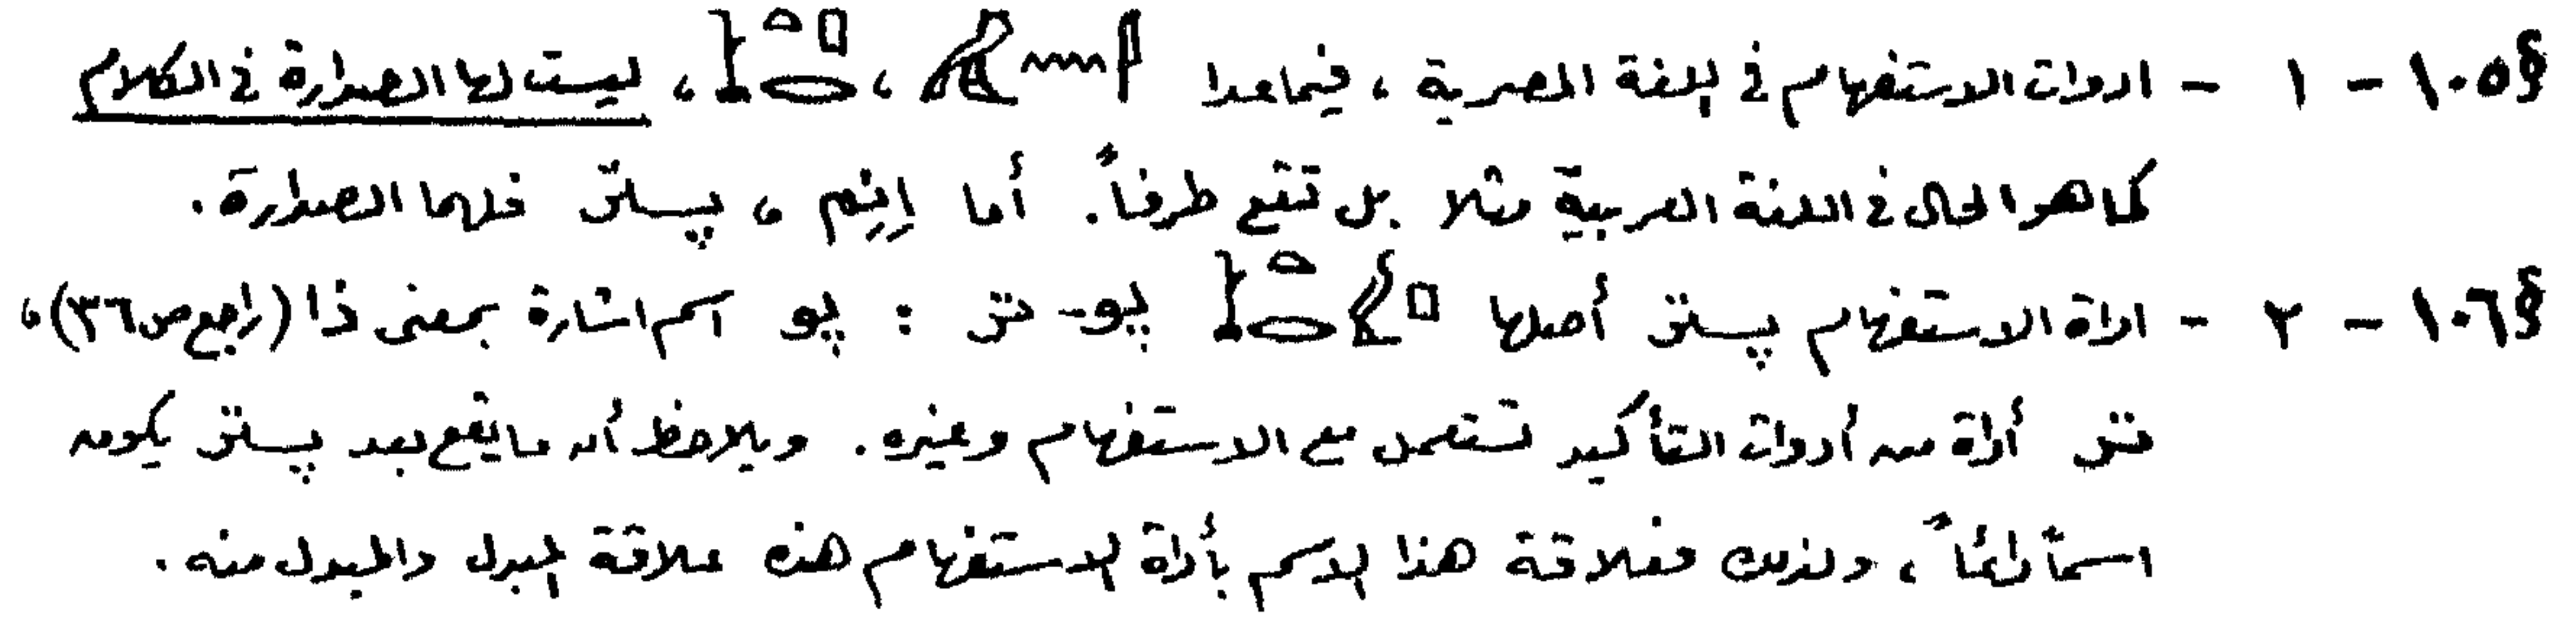 §١٠٥ - ١ - ادوات الاستفهام فى اللغة المصرية ، فيما عدا 𓇋𓈖𓅓 ، 𓊪𓏏𓂋 ، ليست لها الصدارة فى الكلام
كما هو الحال فى اللغة العربية مثلا بل تقع طرفاً . أما إنِم ، پـتر فلهما الصدارة .
§١٠٦ - ٢ - اداة الاستفهام پـتر أصلها 𓊪𓅱𓏏𓂋 پو- تر : پو اسم اشارة بمعنى ذا (راجع ص ٣٦) ،
تر أداة من أدوات التأكيد تستعمل مع الاستفهام وغيره . ويلاحظ أن ما يقع بعد پـتر يكون
اسماً دائماً ، ولذلك فعلاقة هذا الاسم بأداة الاستفهام هذه علاقة البدل والمبدل منه .